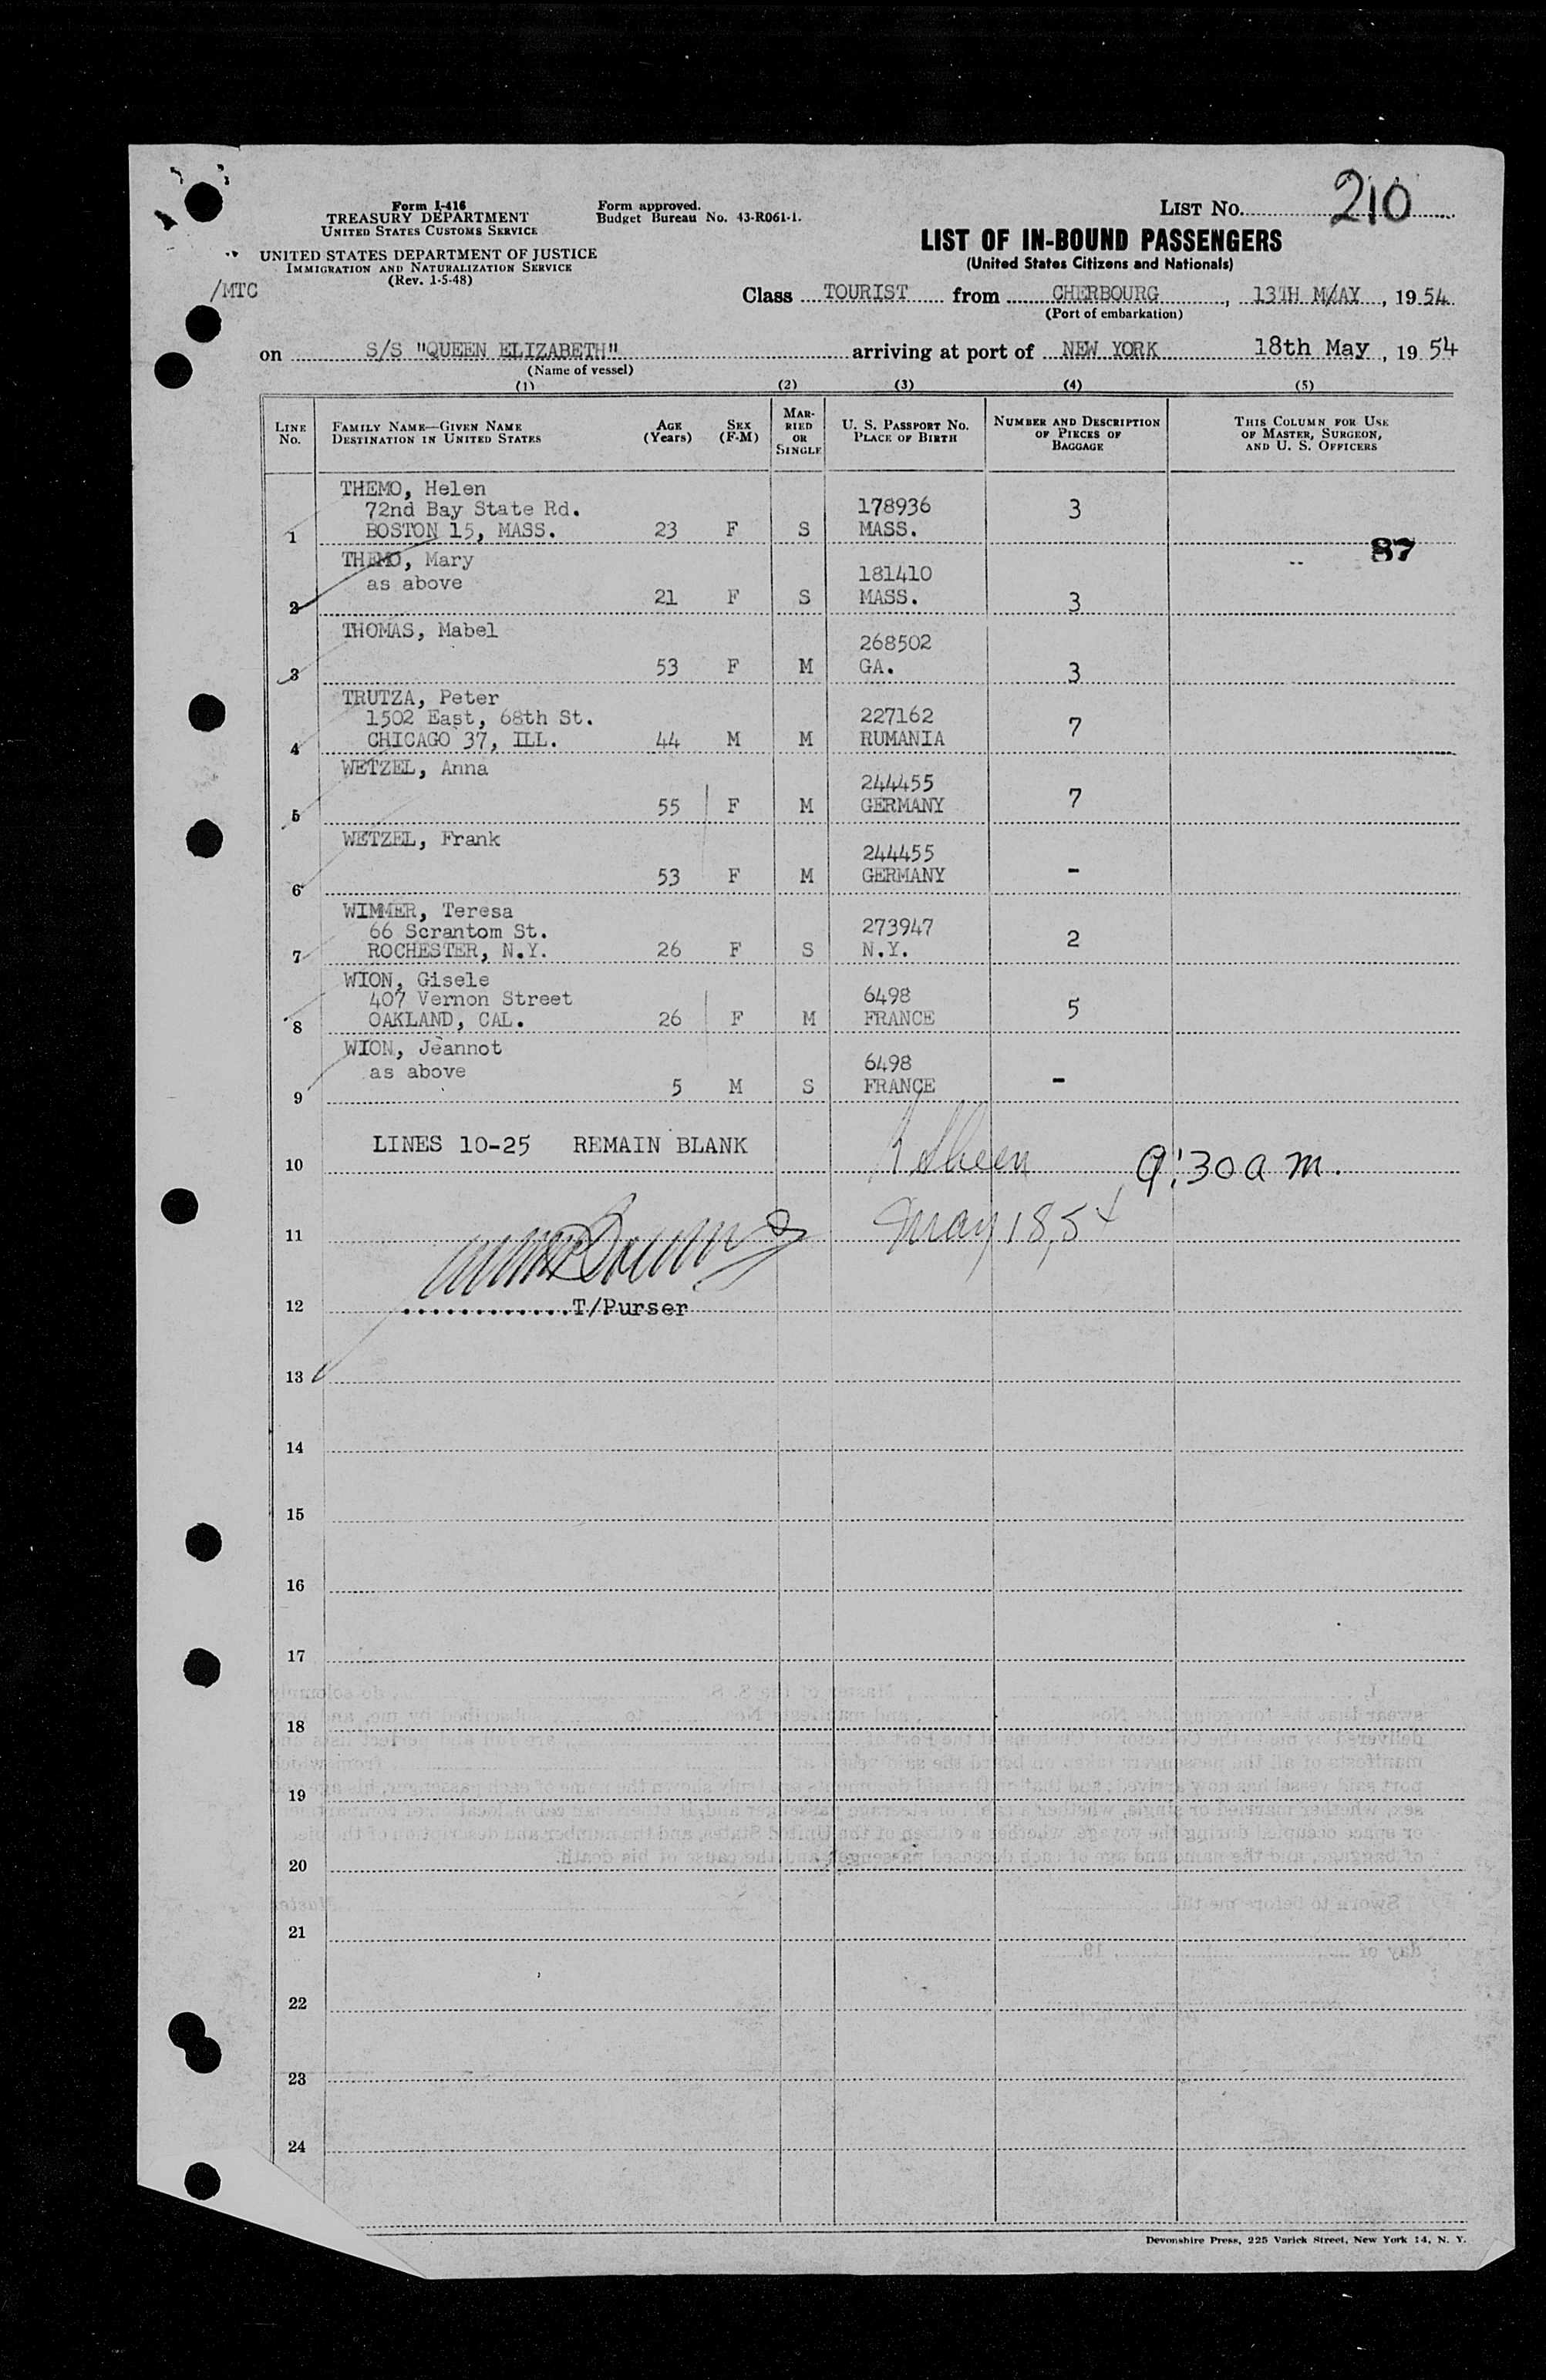 210
Form I-416
TREASURY DEPARTMENT
UNITED STATES CUSTOMS SERVICE
Form approved.
Budget Bureau No. 43-R061-1.
LIST NO.
UNITED STATES DEPARTMENT OF JUSTICE
IMMIGRATION AND NATURALIZATION SERVICE
(Rev. 1-5-48)
/MTC
LIST OF IN-BOUND PASSENGERS
(United States Citizens and Nationals)
Class TOURIST from CHERBOURG, 13TH M/AY, 1954
(Port of embarkation)
on S/S "QUEEN ELIZABETH" arriving at port of NEW YORK 18th May, 1954
(Name of vessel)
(1) (2) (3) (4) (5)
LINE No. FAMILY NAME—GIVEN NAME DESTINATION IN UNITED STATES AGE (Years) SEX (F-M) MARRIED OR SINGLE U. S. PASSPORT NO. PLACE OF BIRTH NUMBER AND DESCRIPTION OF PIECES OF BAGGAGE THIS COLUMN FOR USE OF MASTER, SURGEON, AND U. S. OFFICERS
THEMO, Helen
72nd Bay State Rd. 178936 3
1 BOSTON 15, MASS. 23 F S MASS.
87
THEMO, Mary
as above 181410
2 21 F S MASS. 3
THOMAS, Mabel
268502
3 53 F M GA. 3
TRUTZA, Peter
1502 East, 68th St. 227162 7
4 CHICAGO 37, ILL. 44 M M RUMANIA
WETZEL, Anna
244455
5 55 F M GERMANY 7
WETZEL, Frank
244455
6 53 F M GERMANY -
WIMMER, Teresa
66 Scrantom St. 273947 2
7 ROCHESTER, N.Y. 26 F S N.Y.
WION, Gisele
407 Vernon Street 6498 5
8 OAKLAND, CAL. 26 F M FRANCE
WION, Jeannot
as above 6498
9 5 M S FRANCE -
LINES 10-25 REMAIN BLANK
10 9:30 a m.
11 May 18, 54
12 T/Purser
13
14
15
16
17
18
19
20
21
22
23
24
Devonshire Press, 225 Varick Street, New York 14, N. Y.